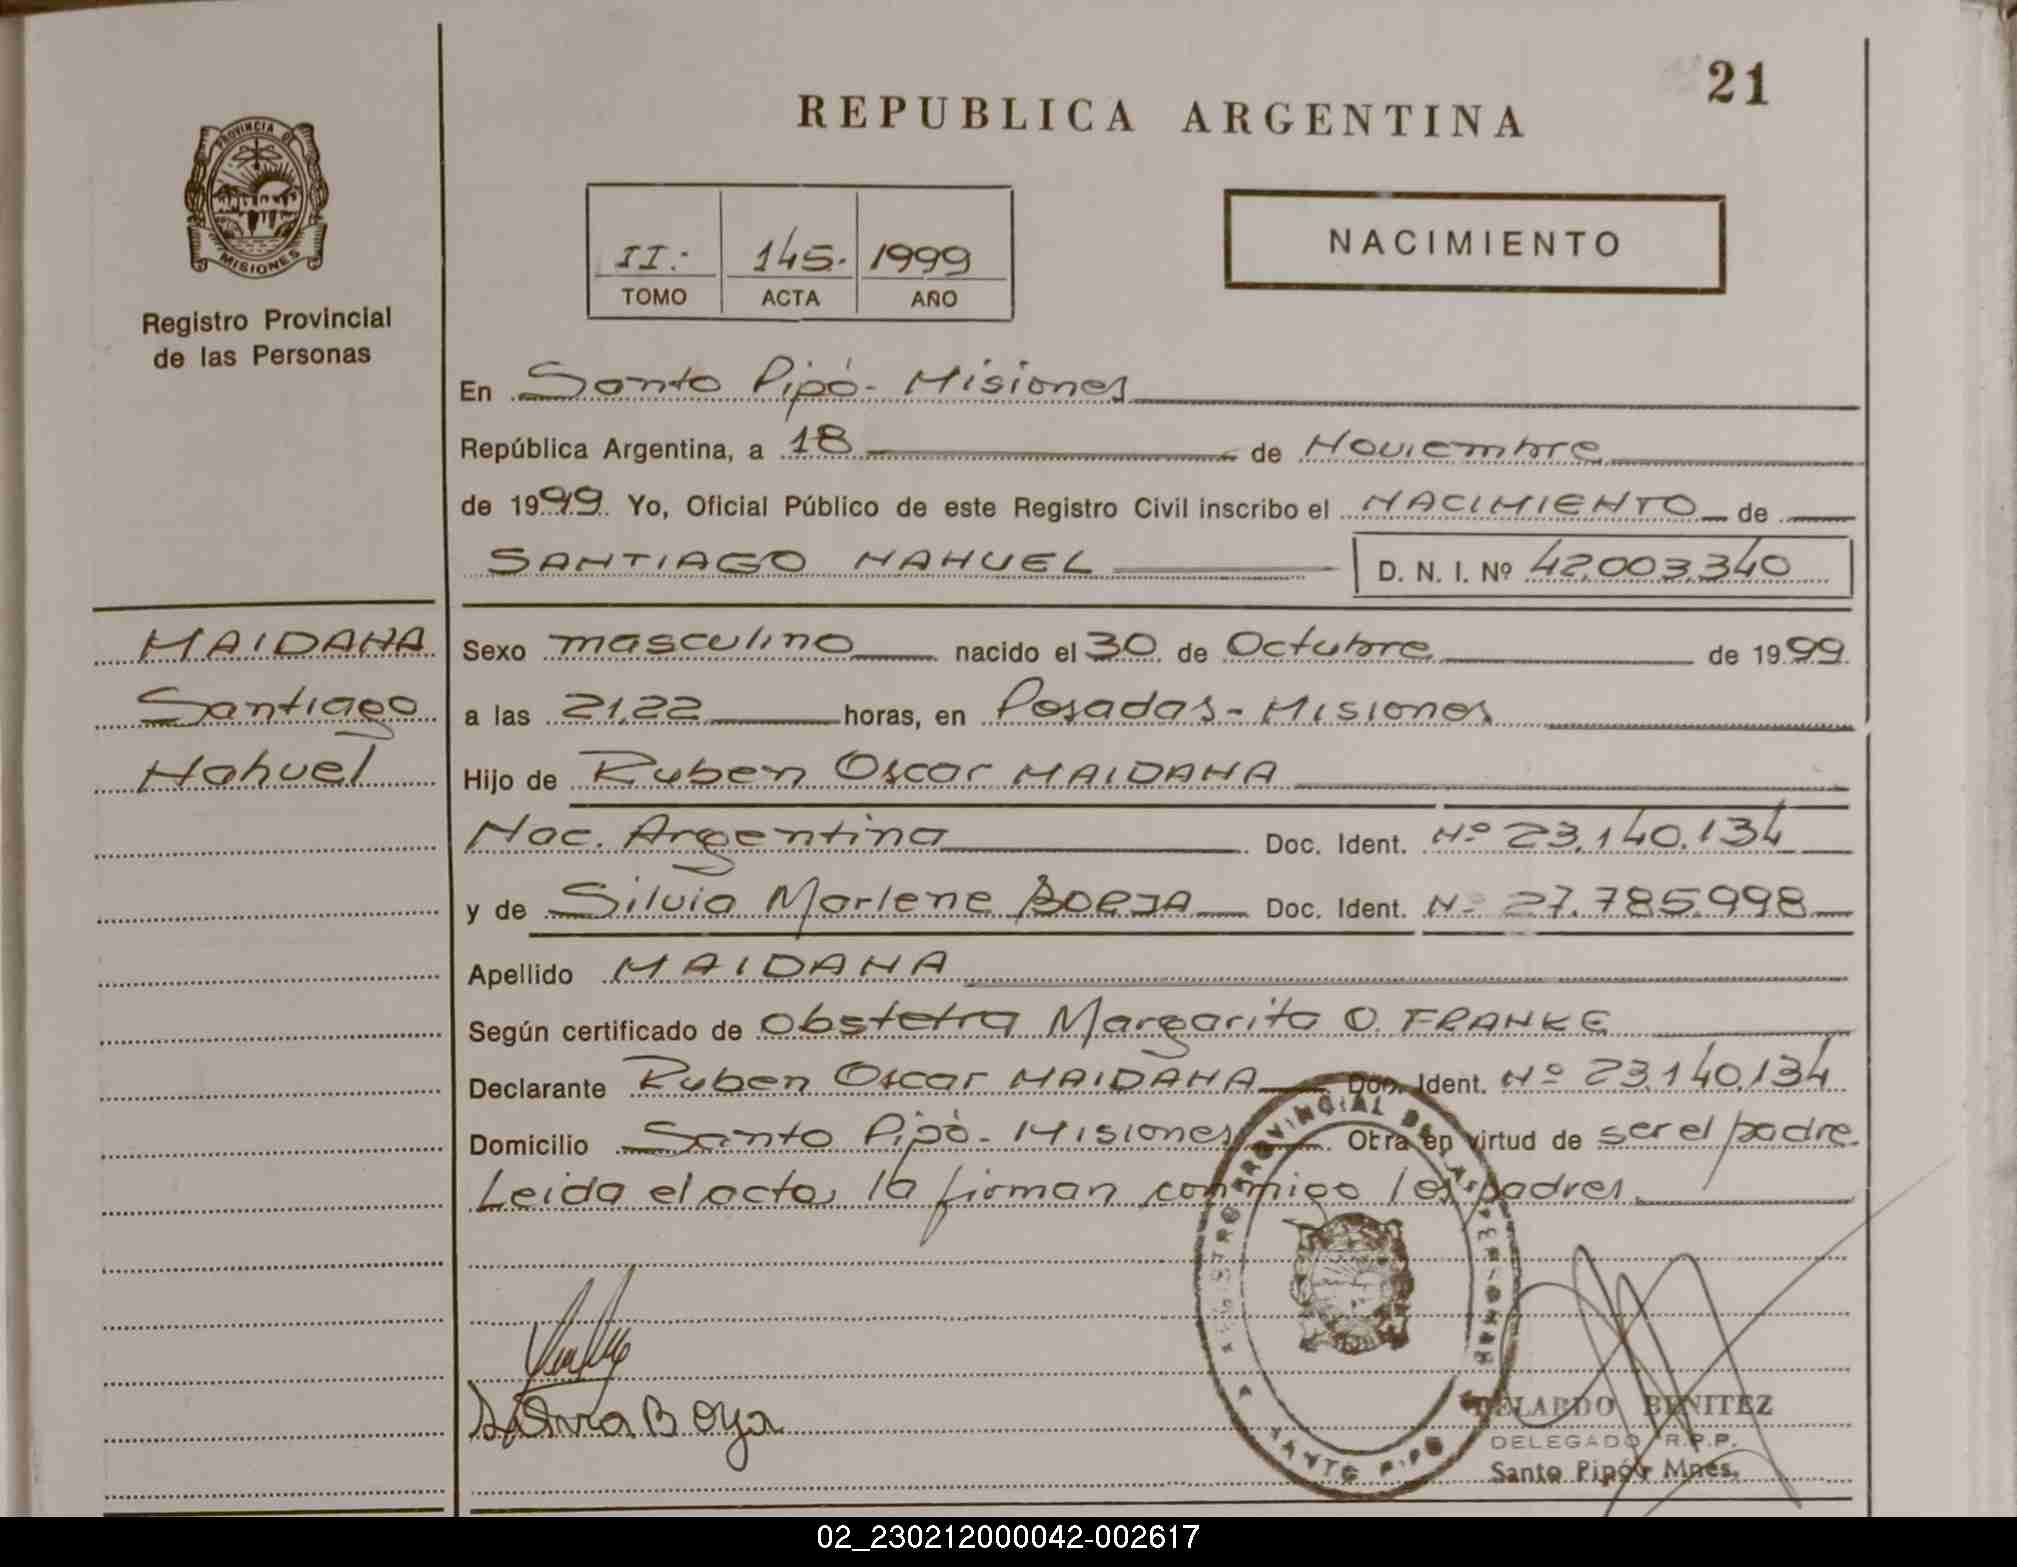 21
REPUBLICA ARGENTINA
PROVINCIA DE
MISIONES
Registro Provincial
de las Personas
II.- 145. 1999
TOMO ACTA AÑO
NACIMIENTO
En Santo Pipó- Misiones
República Argentina, a 18 de Noviembre
de 1999. Yo, Oficial Público de este Registro Civil inscribo el NACIMIENTO de
SANTIAGO NAHUEL D. N. I. Nº 42.003.340
MAIDANA
Santiago
Nahuel
Sexo masculino nacido el 30 de Octubre de 1999.
a las 21,22 horas, en Posadas- Misiones
Hijo de Ruben Oscar MAIDANA
Nac. Argentina Doc. Ident. Nº 23.140.134
y de Silvia Marlene BORJA Doc. Ident. Nº 27.785.998
Apellido MAIDANA
Según certificado de obstetra Margarita O. FRANKE
Declarante Ruben Oscar MAIDANA Doc. Ident. Nº 23.140.134
Domicilio Santo Pipó- Misiones Obra en virtud de ser el padre.
Leida el acta, la firman conmigo los padres.
REGISTRO PROVINCIAL DE LAS PERSONAS
SANTO PIPO
BENITEZ
DELEGADO R.P.P.
Santo Pipó - Mnes.
02_230212000042-002617